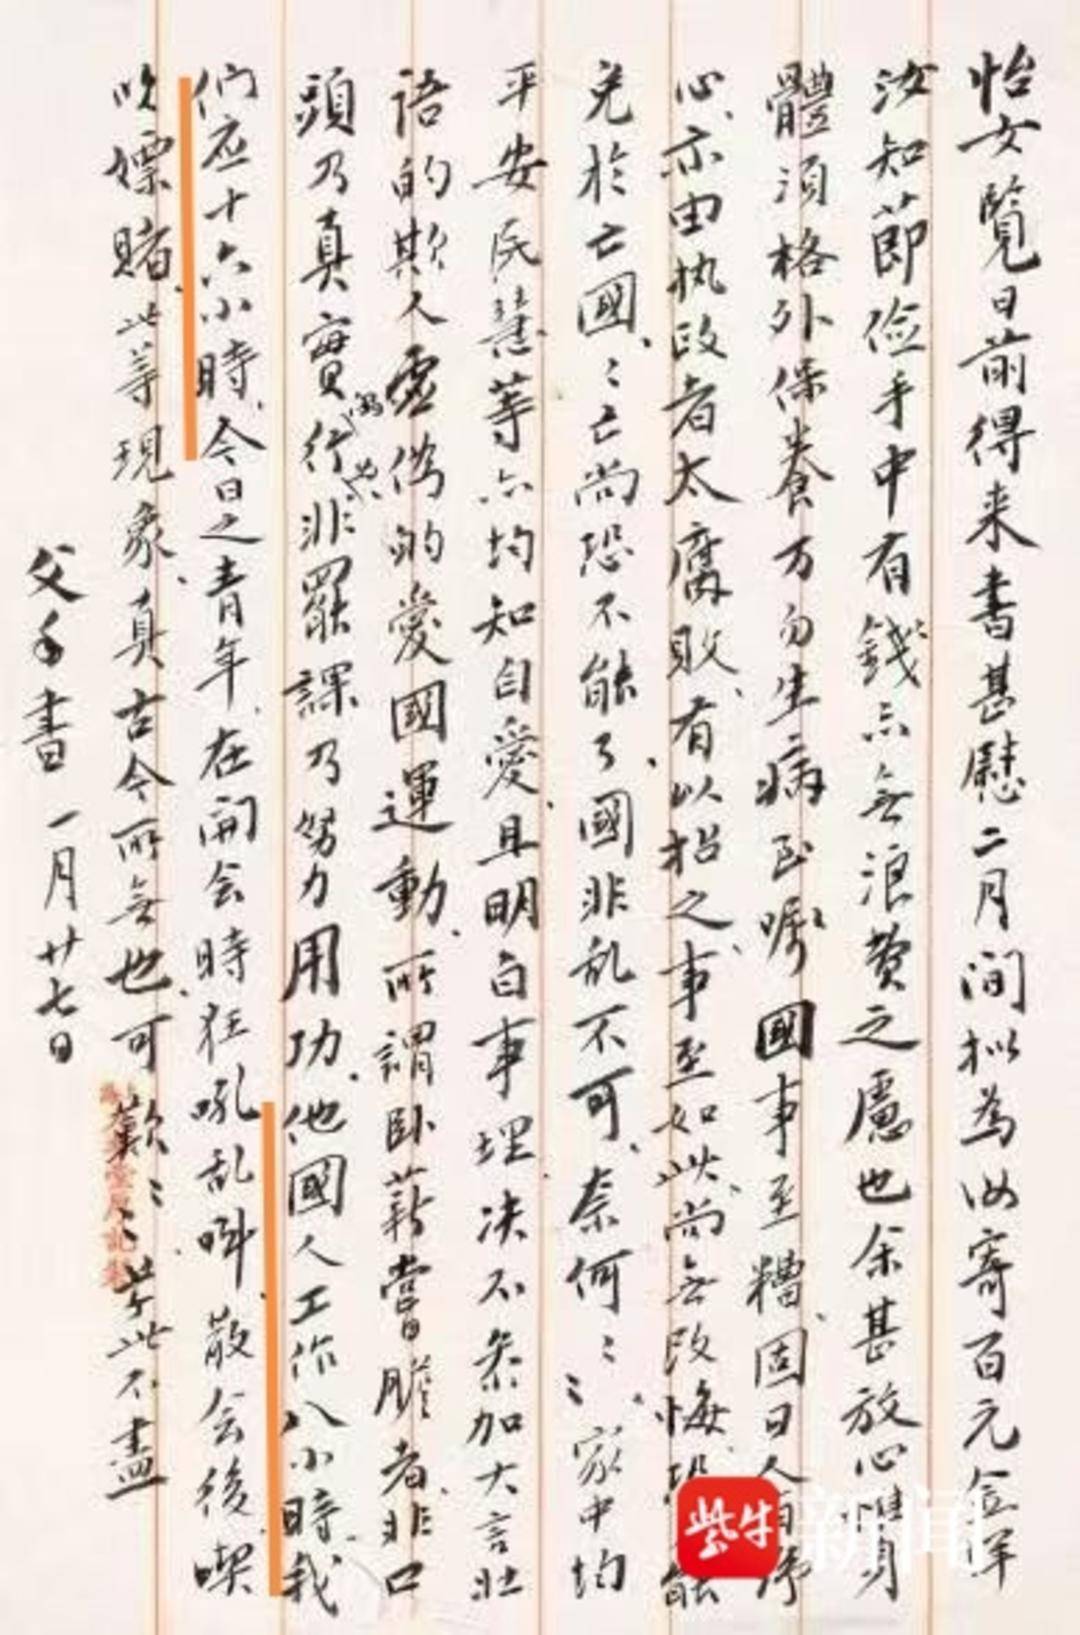 怡女覽日前得来書甚慰二月间拟為汝寄百元金洋
汝知節俭手中有錢亦無浪费之慮也余甚放心惟身
體須格外保養万勿生病至嘱國事至糟、固日人有
心、亦由执政者太腐败、有以招之、事至如此、尚無改悔、恐能
免於亡國、々亡尚恐不能了、國非乱不可、奈何々々、家中均
平安民慧等亦均知自愛、且明白事理、决不参加大言壮
语的欺人虚偽的愛國運動、所謂卧薪嘗膽者、非口
頭乃真實行非罷課乃努力用功、他國人工作八小時、我
们应十六小時、今日之青年、在開会時狂吼乱叫、散会後喫
吹嫖賭、此等現象、真古今所無也、可歎々々、草此不盡
父手書 一月廿七日
紫牛新闻